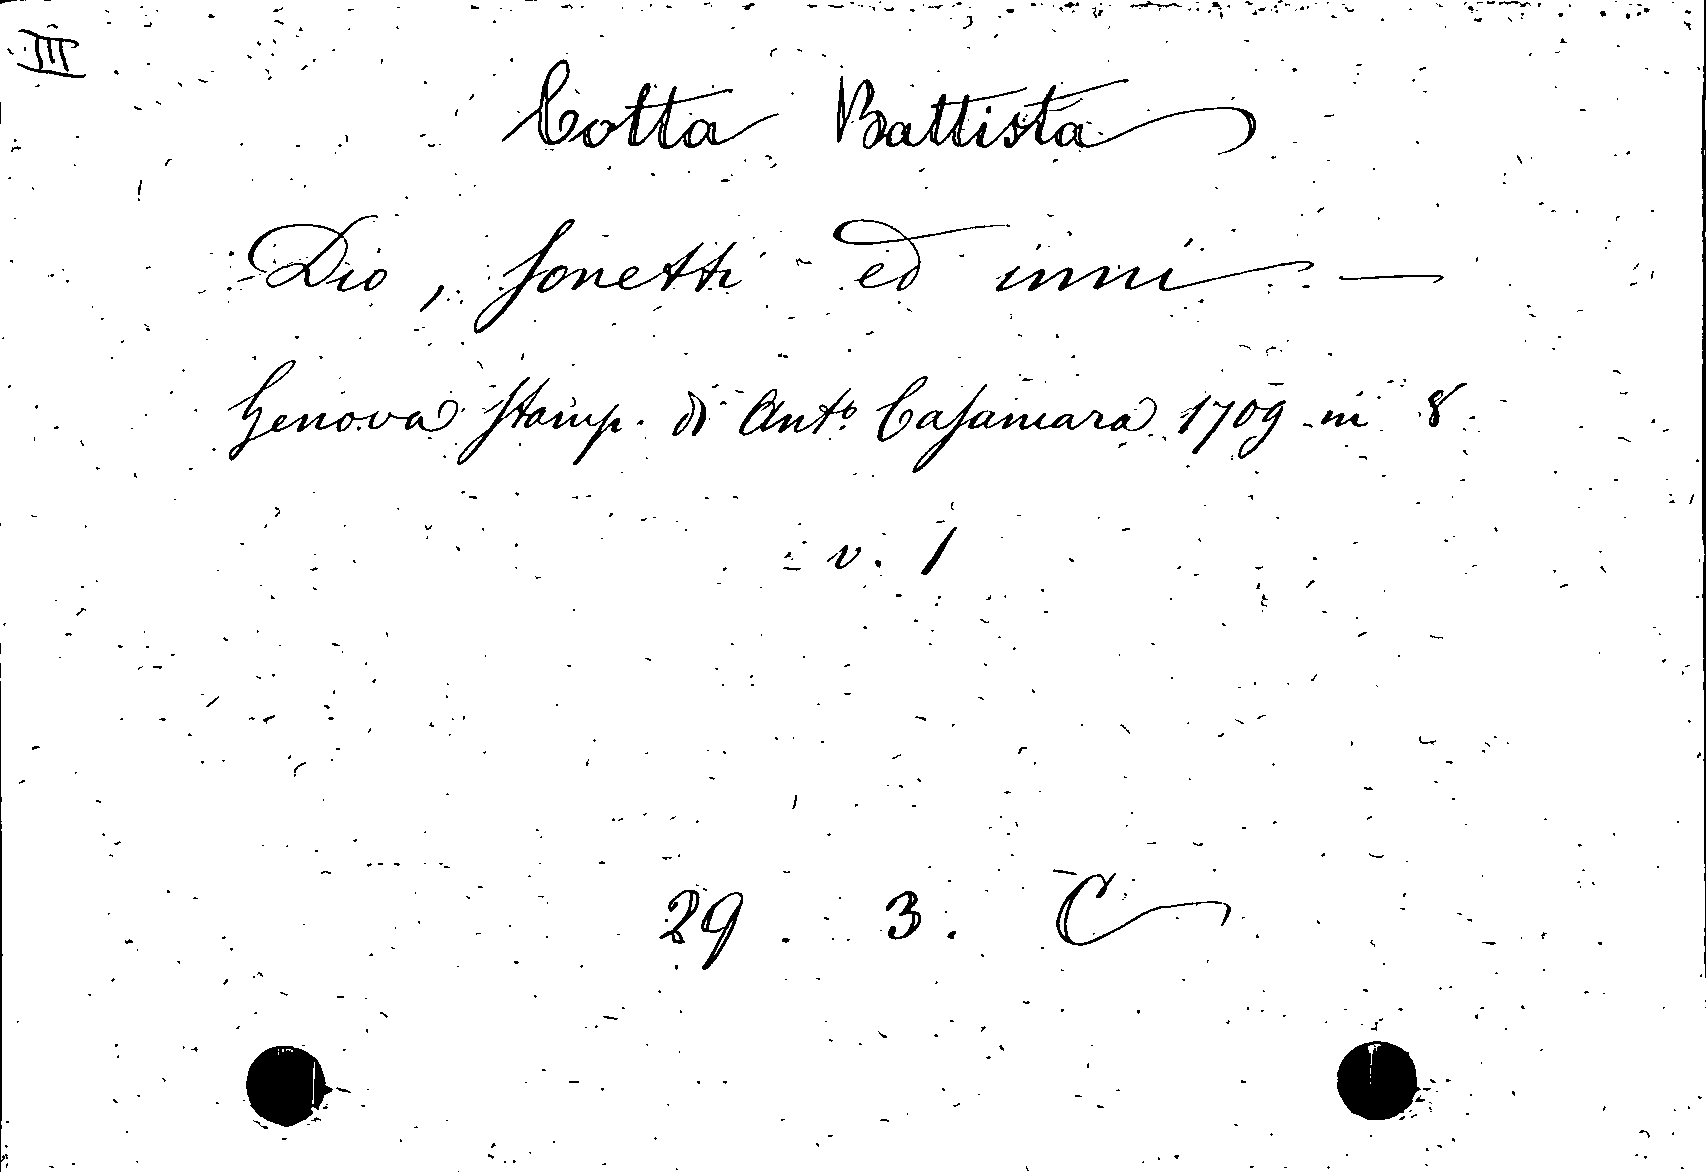 III
Cotta Battista
Dio, sonetti ed inni —
Genova stamp. di Anto Casamara 1709 in 8
v. 1
29 . 3 . C